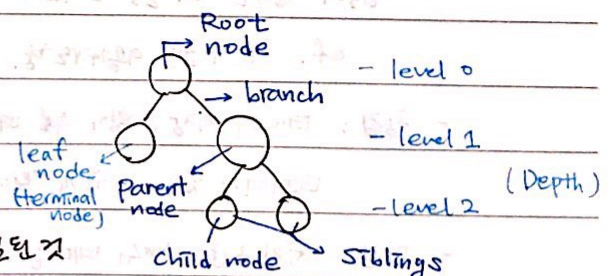 Root
node
- level 0
branch
- level 1
leaf
node
(terminal
node)
Parent
node
(Depth)
- level 2
child node
siblings